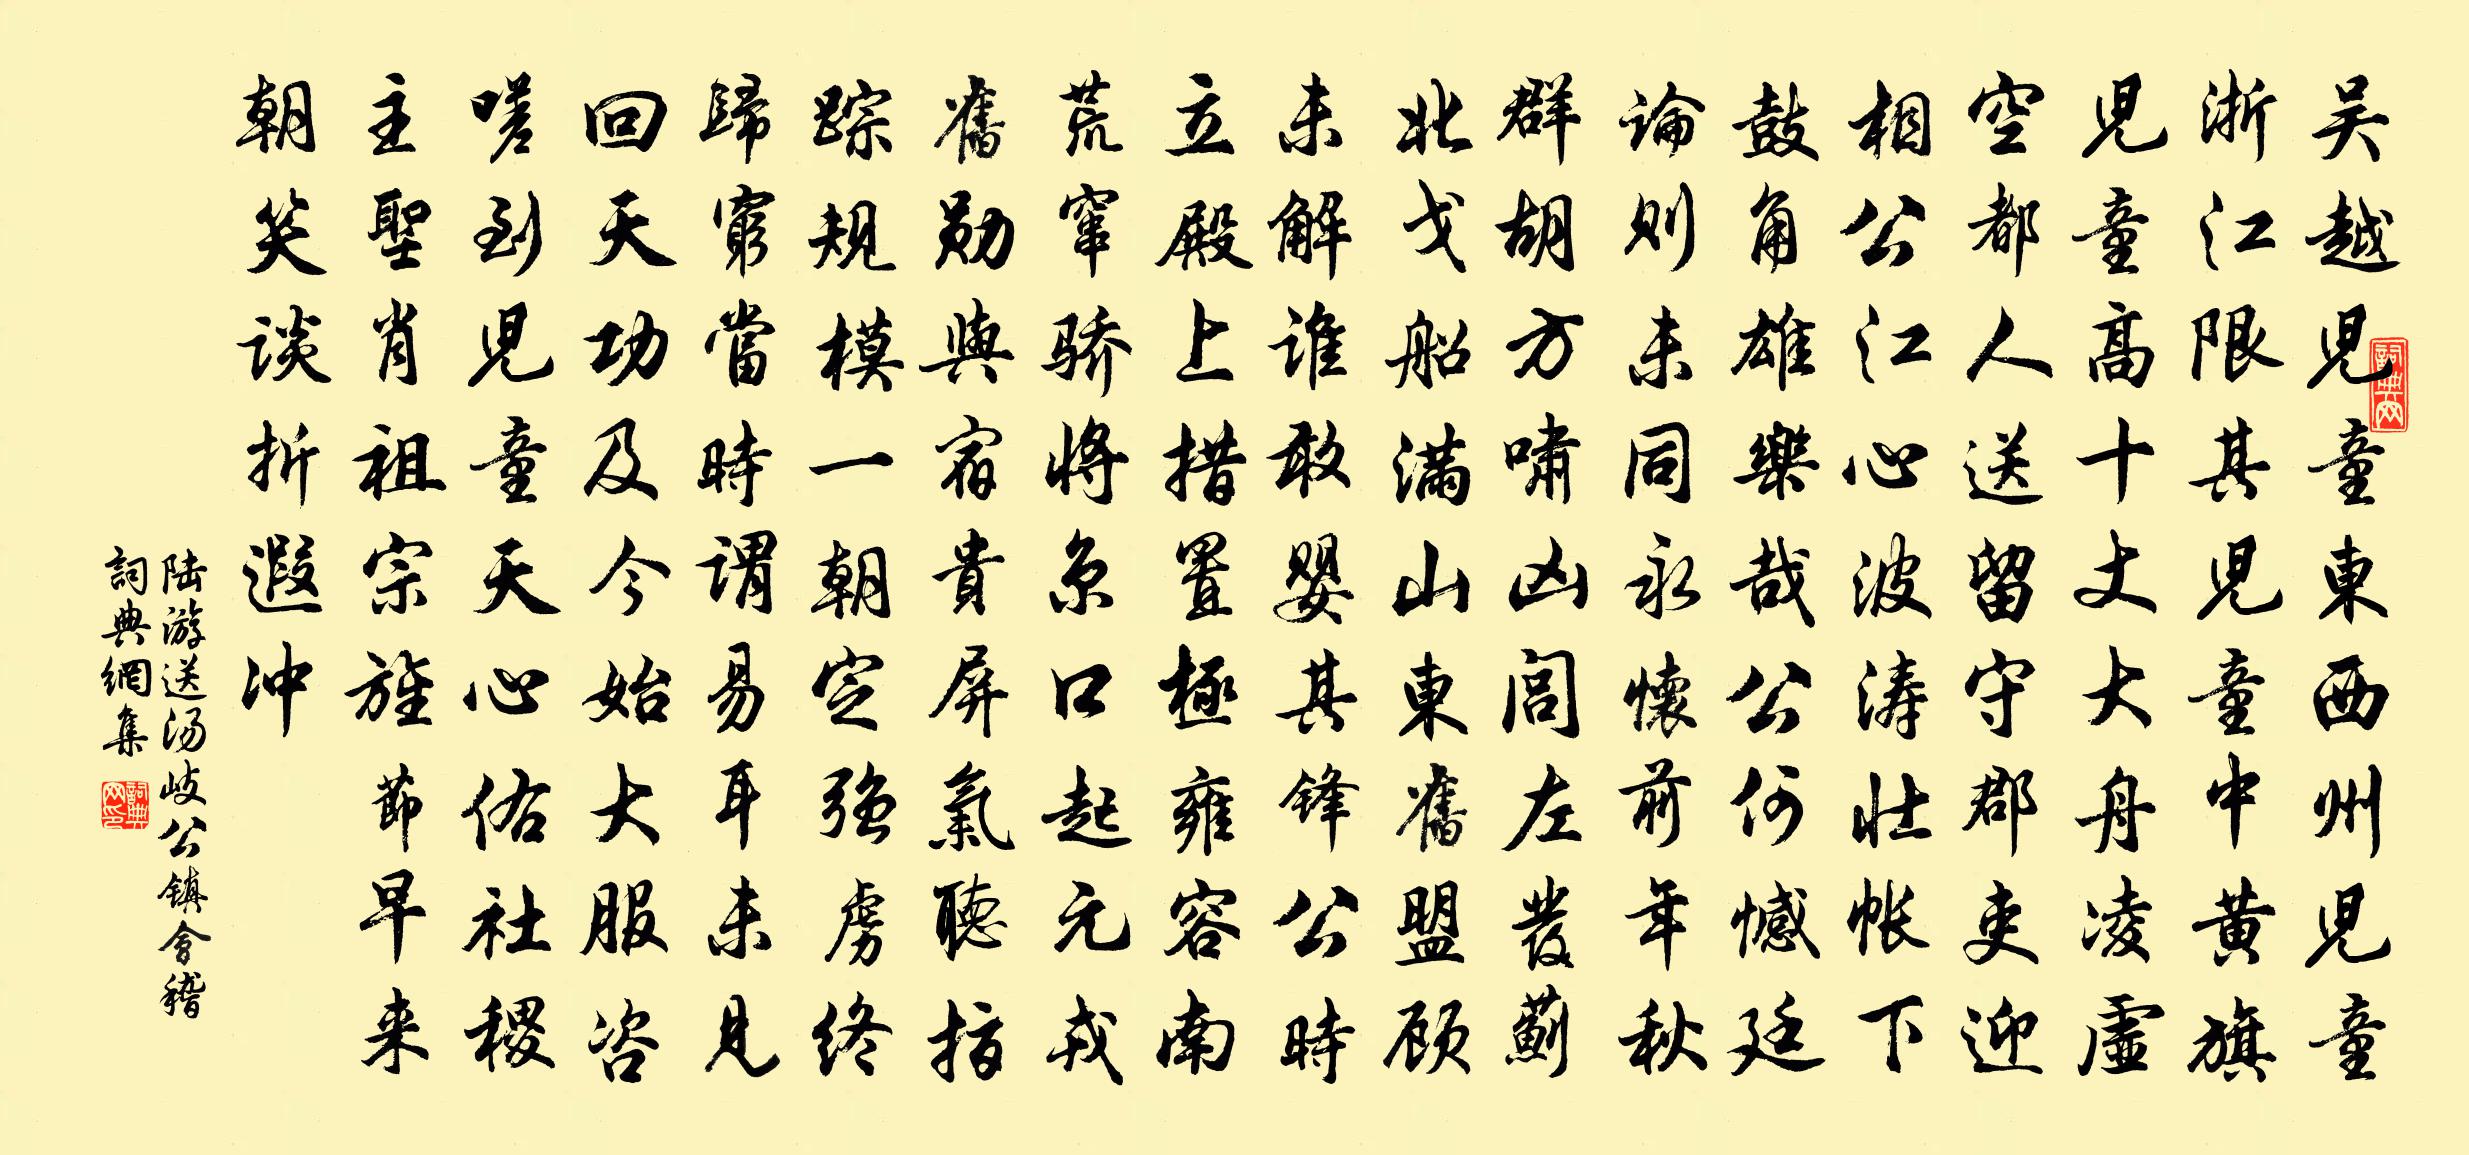 吴越兒童東西州兒童
浙江限其兒童中黃旗
兒童高十丈大舟凌虛
空都人送留守郡吏迎
相公江心波涛壯帐下
鼓角雄樂哉公何憾廷
論则未同永懷前年秋
群胡方嘯凶闾左發蓟
北戈船滿山東舊盟顾
未解谁敢嬰其锋公時
立殿上措置極雍容南
荒窜骄將京口起元戎
舊勋與宿貴屏氣聽指
踪規模一朝定强虜终
歸窮當時谓易耳未見
回天功及今始大服咨
嗟到兒童天心佑社稷
主聖肖祖宗旌節早来
朝笑谈折遐冲
陆游送汤岐公镇會稽
詞典網集
詞典网
詞典网印